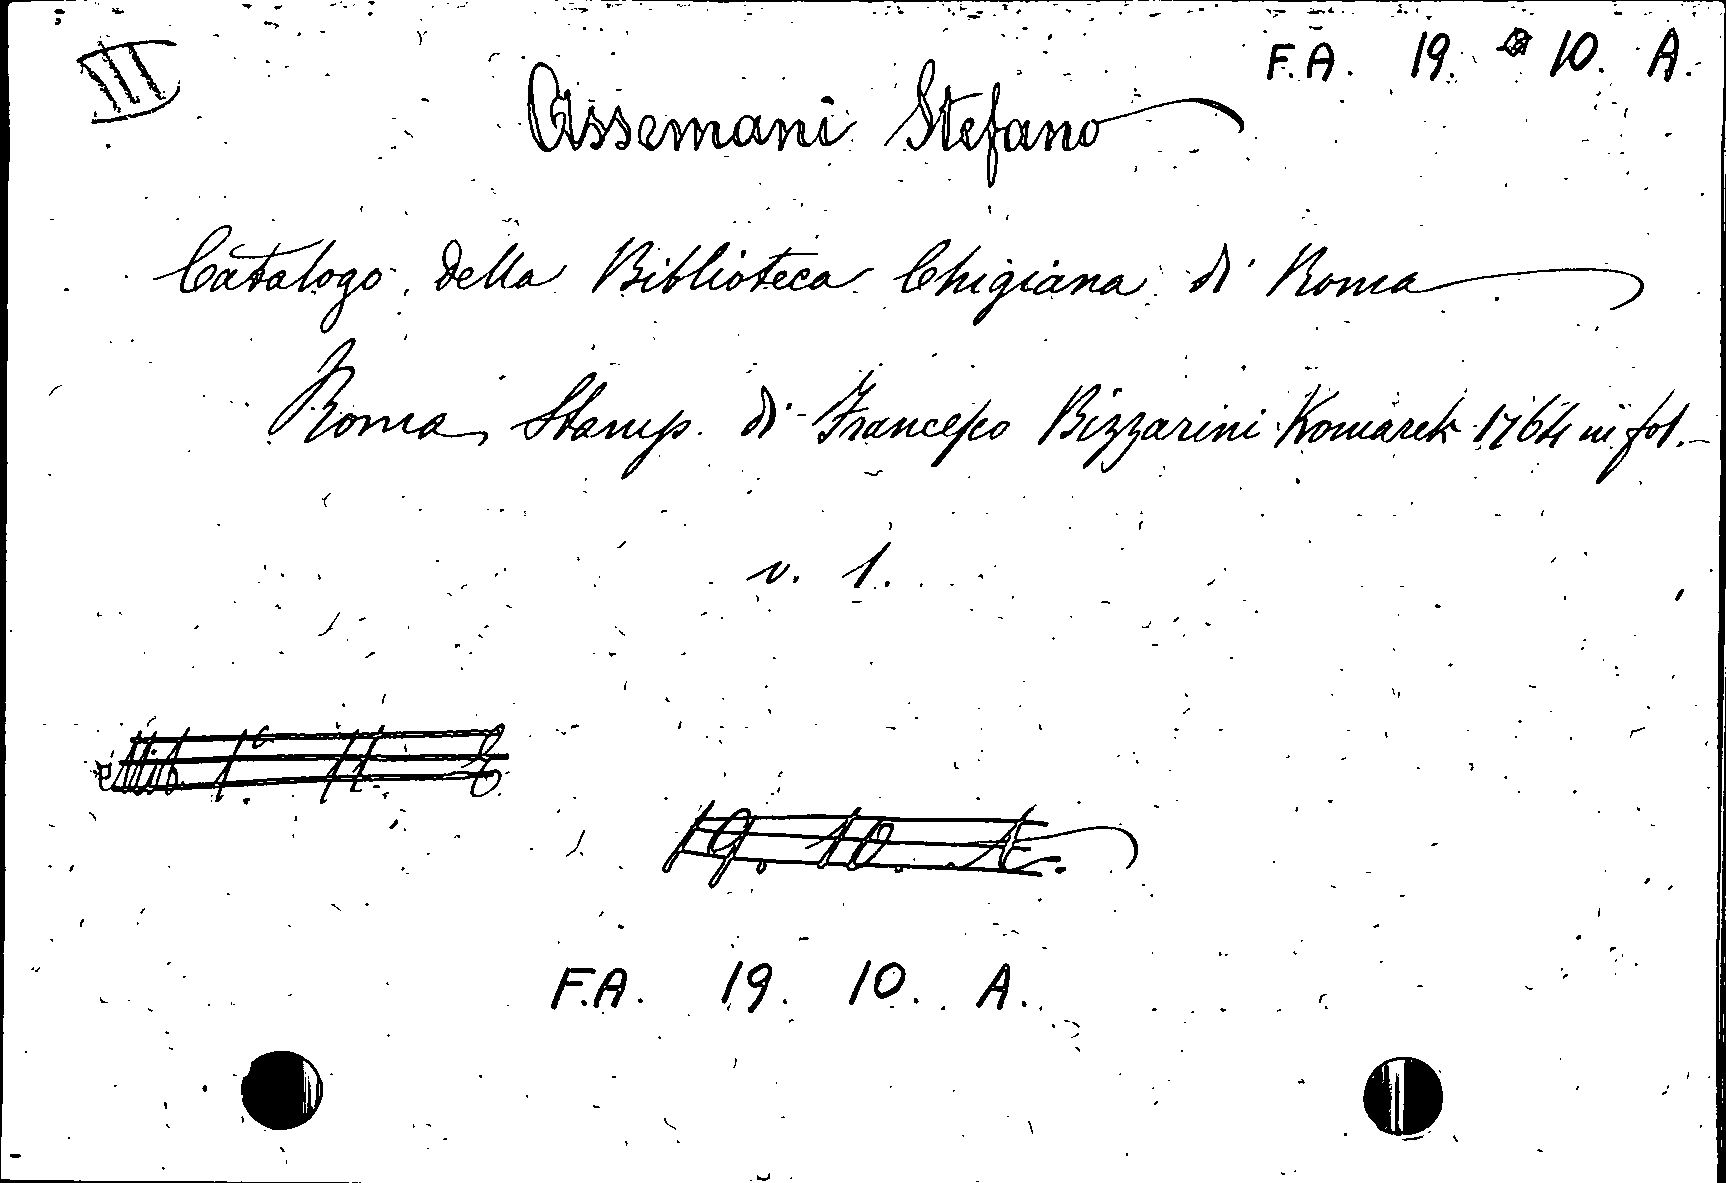 III
F.A. 19. 10. A.
Assemani Stefano
Catalogo della Biblioteca Chigiana di Roma
Roma, Stamp. di Francesco Bizzarini Komarek 1764 in fol.
v. 1.
19. 10. A.
F.A. 19. 10. A.